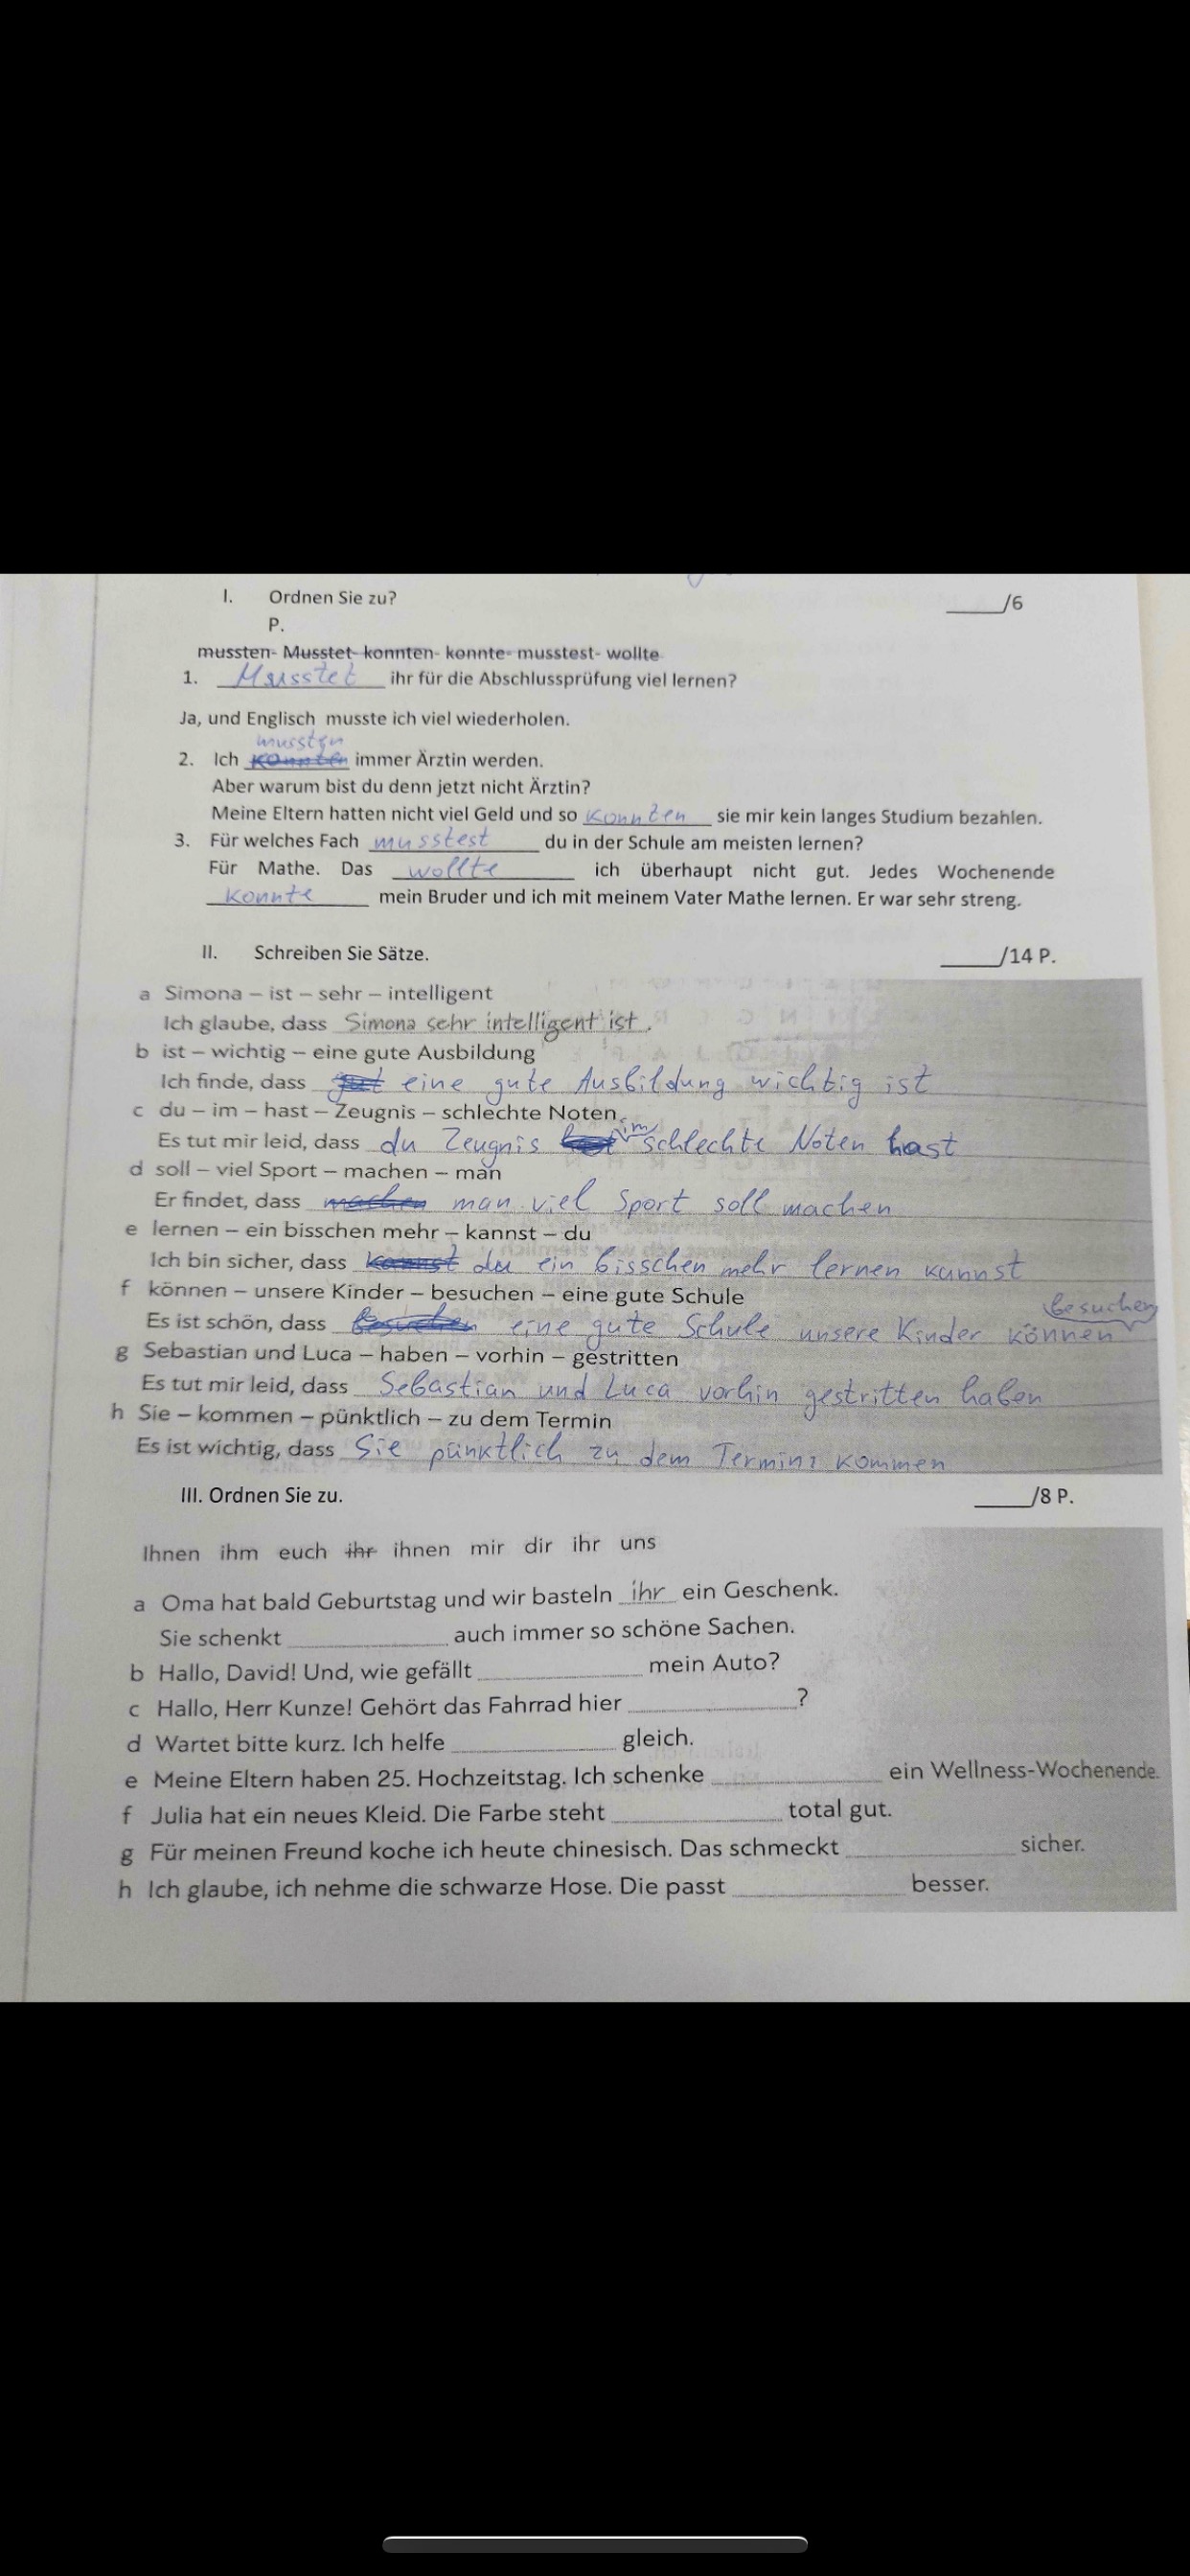 I. Ordnen Sie zu? ______/6
P.
mussten- Musstet- konnten- konnte- musstest- wollte
1. Musstet ihr für die Abschlussprüfung viel lernen?
Ja, und Englisch musste ich viel wiederholen.
mussten
2. Ich konnten immer Ärztin werden.
Aber warum bist du denn jetzt nicht Ärztin?
Meine Eltern hatten nicht viel Geld und so konnten sie mir kein langes Studium bezahlen.
3. Für welches Fach musstest du in der Schule am meisten lernen?
Für Mathe. Das wollte ich überhaupt nicht gut. Jedes Wochenende
konnte mein Bruder und ich mit meinem Vater Mathe lernen. Er war sehr streng.
II. Schreiben Sie Sätze. ______/14 P.
a Simona – ist – sehr – intelligent
Ich glaube, dass Simona sehr intelligent ist.
b ist – wichtig – eine gute Ausbildung
Ich finde, dass eine gute Ausbildung wichtig ist
c du – im – hast – Zeugnis – schlechte Noten
Es tut mir leid, dass du Zeugnis im schlechte Noten hast
d soll – viel Sport – machen – man
Er findet, dass machen man viel Sport soll machen
e lernen – ein bisschen mehr – kannst – du
Ich bin sicher, dass kannst du ein bisschen mehr lernen kannst
f können – unsere Kinder – besuchen – eine gute Schule
besuchen
Es ist schön, dass besuchen eine gute Schule unsere Kinder können
g Sebastian und Luca – haben – vorhin – gestritten
Es tut mir leid, dass Sebastian und Luca vorhin gestritten haben
h Sie – kommen – pünktlich – zu dem Termin
Es ist wichtig, dass Sie pünktlich zu dem Termin kommen
III. Ordnen Sie zu. ______/8 P.
Ihnen ihm euch ihr ihnen mir dir ihr uns
a Oma hat bald Geburtstag und wir basteln ihr ein Geschenk.
Sie schenkt ______ auch immer so schöne Sachen.
b Hallo, David! Und, wie gefällt ______ mein Auto?
c Hallo, Herr Kunze! Gehört das Fahrrad hier ______?
d Wartet bitte kurz. Ich helfe ______ gleich.
e Meine Eltern haben 25. Hochzeitstag. Ich schenke ______ ein Wellness-Wochenende.
f Julia hat ein neues Kleid. Die Farbe steht ______ total gut.
g Für meinen Freund koche ich heute chinesisch. Das schmeckt ______ sicher.
h Ich glaube, ich nehme die schwarze Hose. Die passt ______ besser.